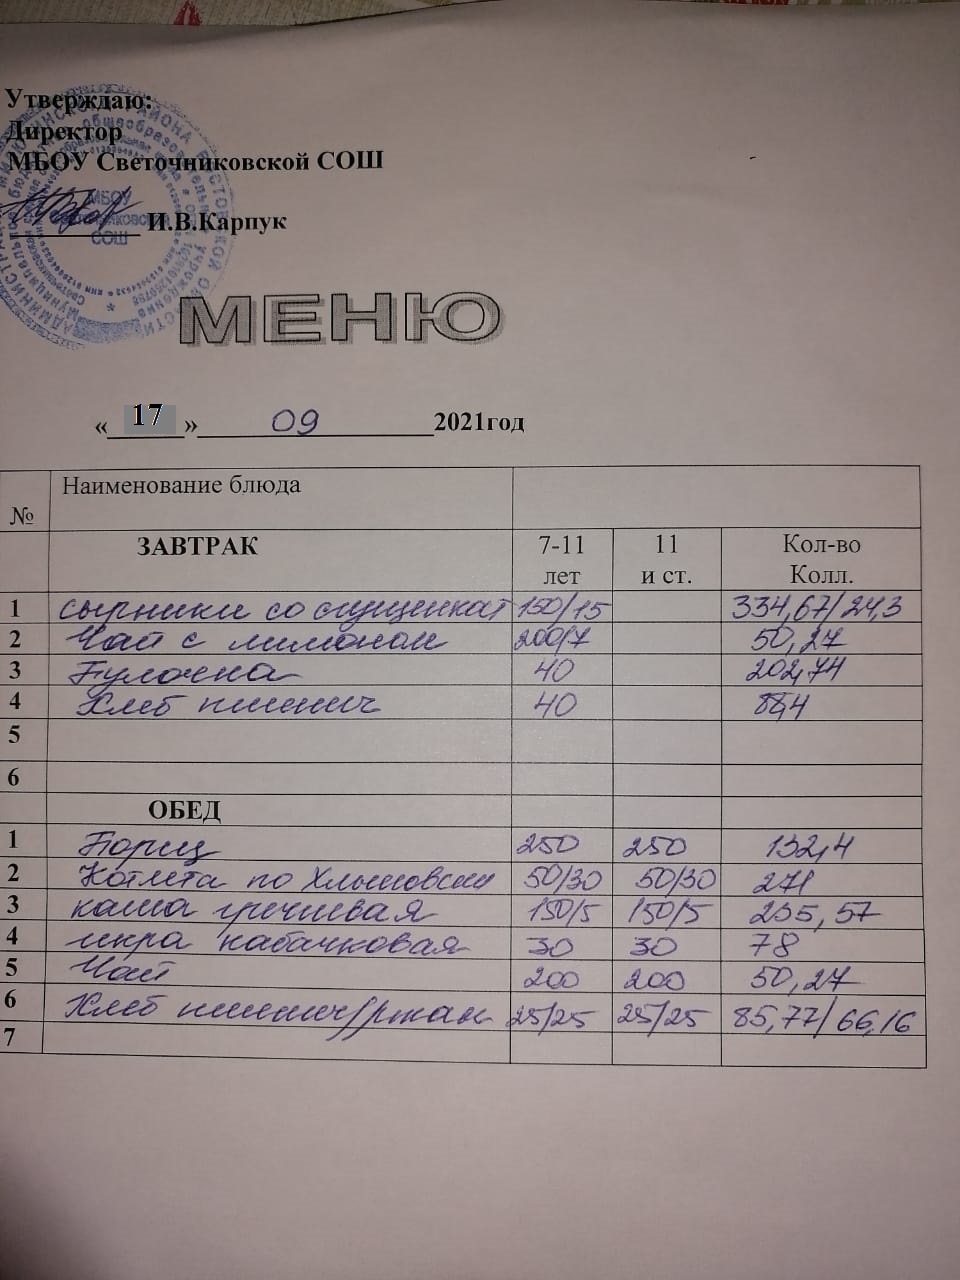 Утверждаю:
Директор
МБОУ Светочниковской СОШ
И.В.Карпук
МБОУ
СОШ
МЕНЮ
« 17 » 09 2021год
№ Наименование блюда
ЗАВТРАК 7-11 лет 11 и ст. Кол-во Колл.
1 Сырники со сгущенкой 150/15 334,67/24,3
2 Чай с лимоном 200/7 50,27
3 Булочка 40 202,74
4 Хлеб пшенич 40
5
6
ОБЕД
1 Борщ 250 250 132,4
2 Котлета по Хлыновски 50/30 50/30 271
3 каша гречневая 150/5 150/5 235,57
4 икра кабачковая 30 30 78
5 Чай 200 200 50,27
6 Хлеб пшенич/ржан 25/25 25/25 85,77/66,16
7